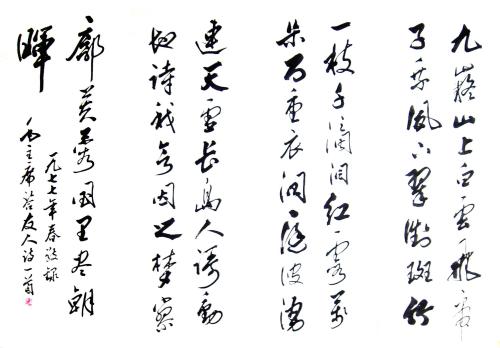 九嶷山上白雲飛帝
子乘風下翠微斑竹
一枝千滴泪红霞萬
朵百重衣洞庭波涌
連天雪長島人歌動
地詩我欲因之梦寥
廓芙蓉国里尽朝
晖
一九七七年春敬録
毛主席答友人诗一首